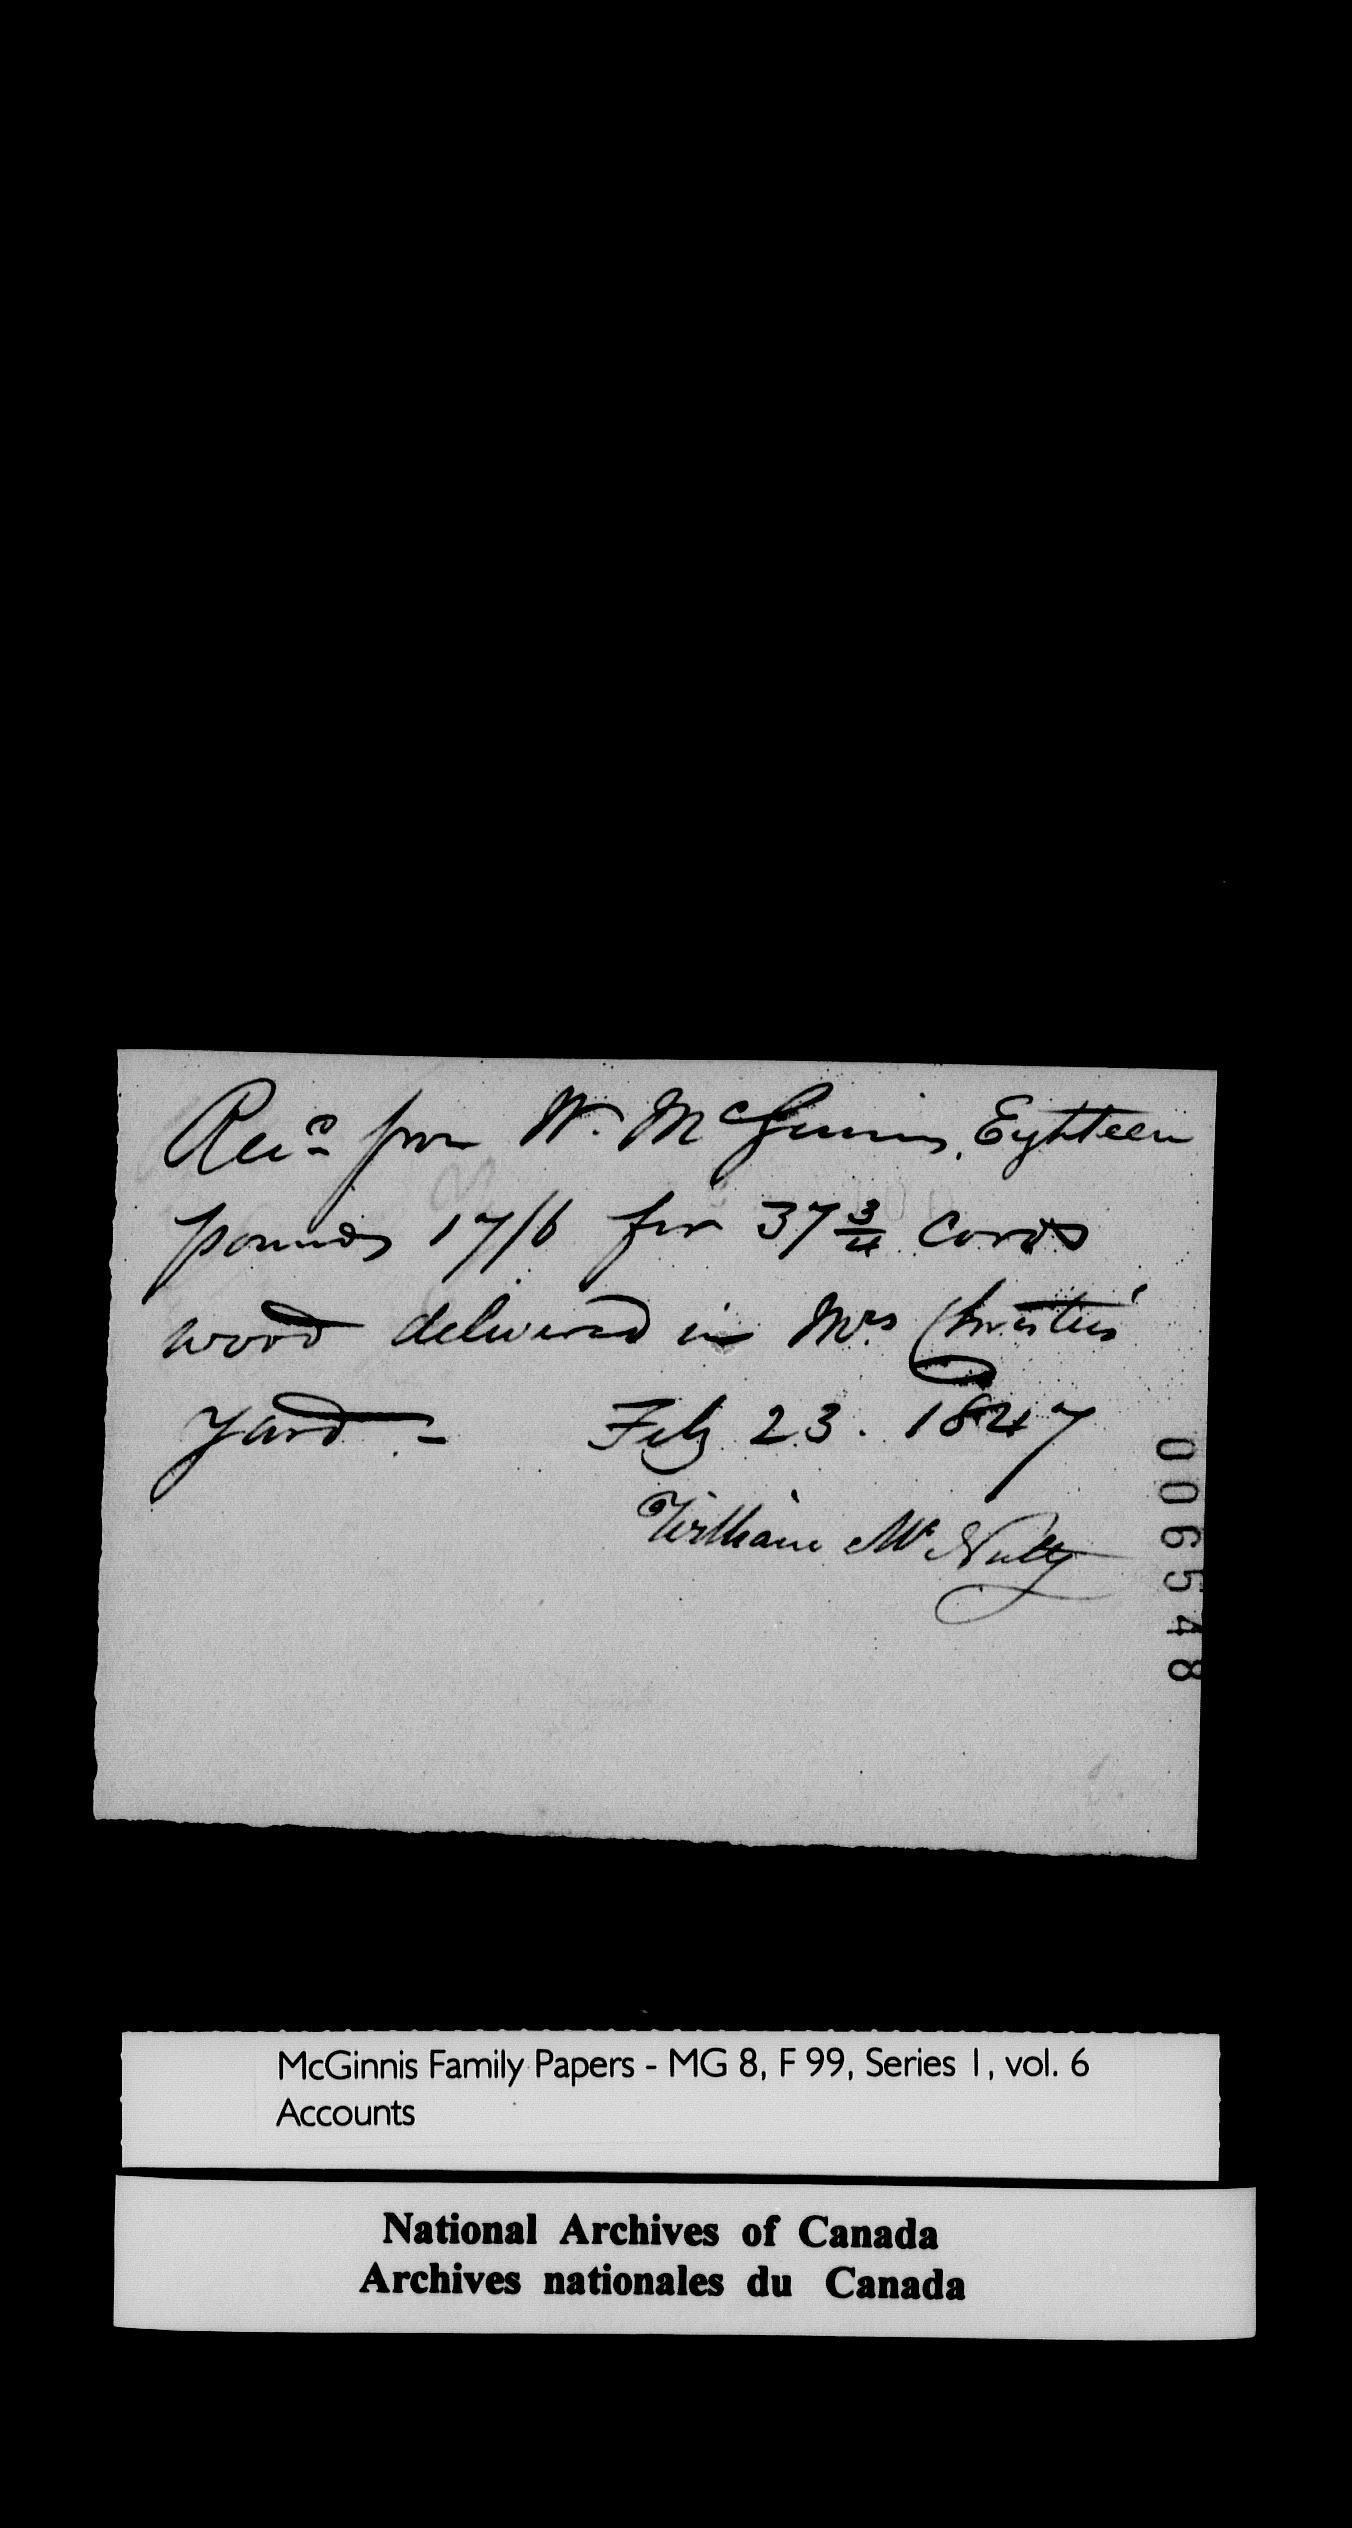 Rec.d from W. McGinnis, Eighteen
pounds 17/6 for 37 3/4 cords
wood delivered in Mrs Christie's
yard - Feby 23. 1847
William McNulty
006548
McGinnis Family Papers - MG 8, F 99, Series 1, vol. 6
Accounts
National Archives of Canada
Archives nationales du Canada